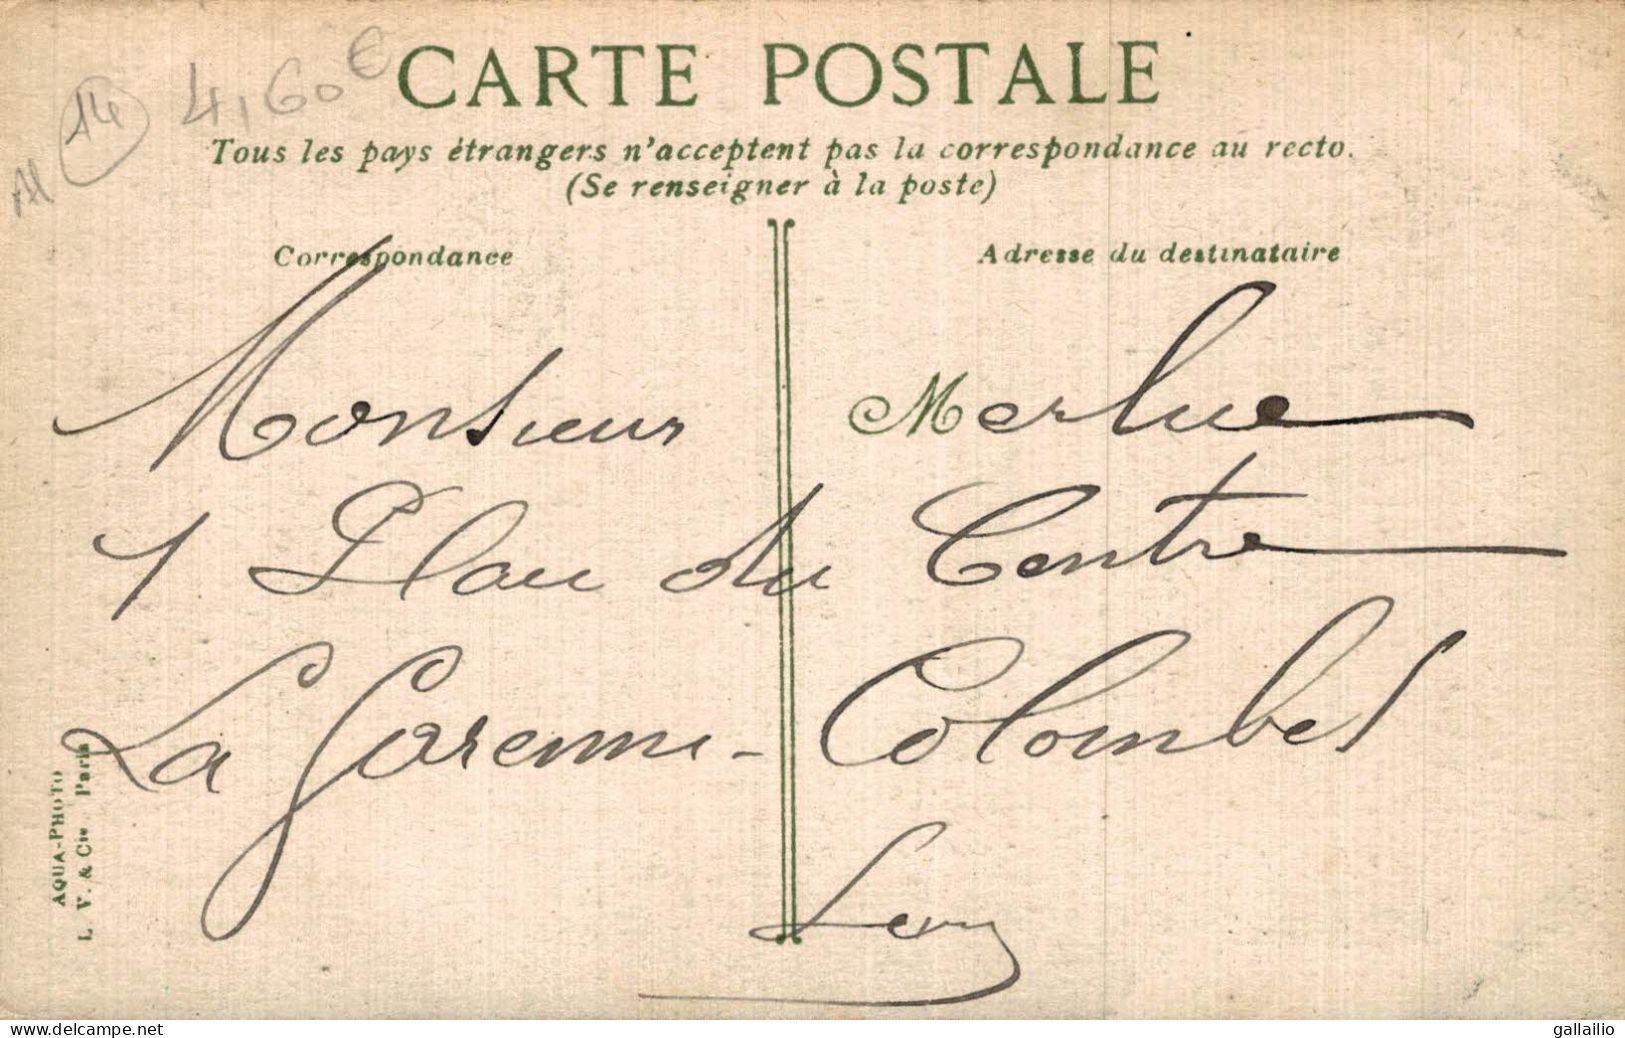 14
4,60€
CARTE POSTALE
Tous les pays étrangers n'acceptent pas la correspondance au recto.
(Se renseigner à la poste)
Correspondance
Adresse du destinataire
Monsieur Merlue
1 Place du Centre
La Garenne-Colombes
AQUA-PHOTO
L. V. & Cie Paris
www.delcampe.net
gallailio